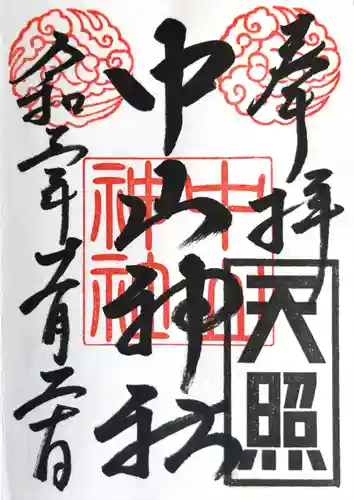 奉拝
天照
中山神社
中山神社
令和三年十一月二十日